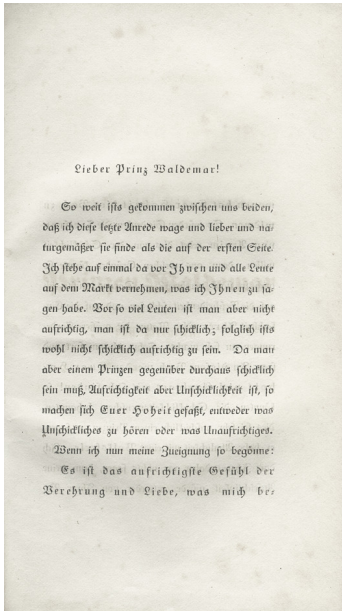 Lieber Prinz Waldemar!
So weit ists gekommen zwischen uns beiden,
daß ich diese letzte Anrede wage und lieber und na-
turgemäßer sie finde als die auf der ersten Seite.
Ich stehe auf einmal da vor Ihnen und alle Leute
auf dem Markt vernehmen, was ich Ihnen zu sa-
gen habe. Vor so viel Leuten ist man aber nicht
aufrichtig, man ist da nur schicklich; folglich ists
wohl nicht schicklich aufrichtig zu sein. Da man
aber einem Prinzen gegenüber durchaus schicklich
sein muß, Aufrichtigkeit aber Unschicklichkeit ist, so
machen sich Euer Hoheit gefaßt, entweder was
Unschickliches zu hören oder was Unaufrichtiges.
Wenn ich nun meine Zueignung so begönne:
Es ist das aufrichtigste Gefühl der
Verehrung und Liebe, was mich be-